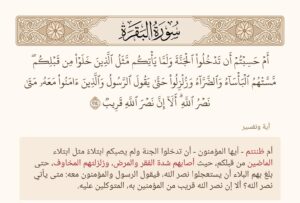 سُورَةُ البَقَرَةِ
أَمْ حَسِبْتُمْ أَن تَدْخُلُوا۟ ٱلْجَنَّةَ وَلَمَّا يَأْتِكُم مَّثَلُ ٱلَّذِينَ خَلَوْا۟ مِن قَبْلِكُم ۖ
مَّسَّتْهُمُ ٱلْبَأْسَآءُ وَٱلضَّرَّآءُ وَزُلْزِلُوا۟ حَتَّىٰ يَقُولَ ٱلرَّسُولُ وَٱلَّذِينَ ءَامَنُوا۟ مَعَهُۥ مَتَىٰ
نَصْرُ ٱللَّهِ ۗ أَلَآ إِنَّ نَصْرَ ٱللَّهِ قَرِيبٌ ٢١٤
آية وتفسير
أم ظننتم - أيها المؤمنون - أن تدخلوا الجنة ولم يصبكم ابتلاءٌ مثل ابتلاء
الماضين من قبلكم، حيث أصابهم شدة الفقر والمرض، وزلزلتهم المخاوف، حتى
بلغ بهم البلاء أن يستعجلوا نصر الله، فيقول الرسول والمؤمنون معه: متى يأتي
نصر الله؟ ألا إن نصر الله قريب من المؤمنين به، المتوكلين عليه.